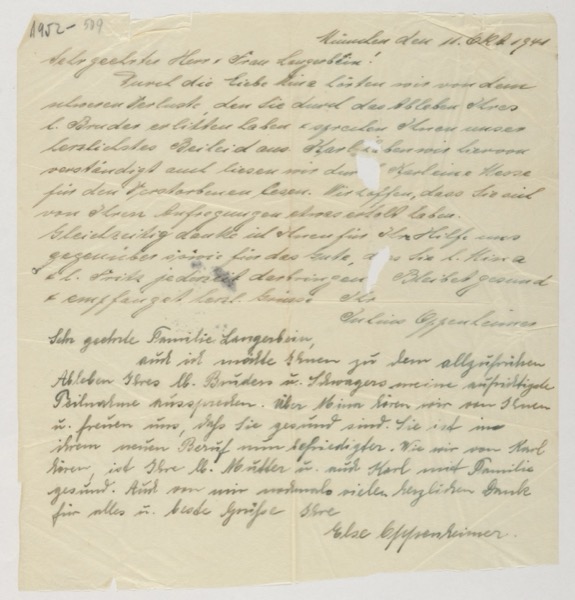 1952-
München den 11. Okt. 1941
Sehr geehrter Herr u. Frau Langerbein!
Durch die liebe Mina hörten wir von dem
schweren Verluste, den Sie durch das Ableben Ihres
l. Bruder erlitten haben u. sprechen Ihnen unser
herzlichstes Beileid aus. Karl haben wir hiervon
verständigt und liesen wir durch Messe
für den Verstorbenen lesen. Wir hoffen, dass Sie sich
von Ihren Aufregungen etwas erholt haben.
Gleichzeitig danke ich Ihnen für Ihr Hilfe uns
gegenüber sowie für das Gute, das Sie l. Mina
u. l. Fritz jederzeit Bleibet gesund
u. empfanget herzl. Grüsse Ihr
Julius Oppenheimer
Sehr geehrte Familie Langerbein,
auch ich möchte Ihnen zu dem allzufrühen
Ableben Ihres lb. Bruders u. Schwagers meine aufrichtigste
Teilnahme aussprechen. Über Mina hören wir von Ihnen
u. freuen uns, daß Sie gesund sind. Sie ist in
ihrem neuen Beruf nun befriedigter. Wie wir von Karl
hören, ist Ihre lb. Mutter u. auch Karl mit Familie
gesund. Auch von mir nochmals vielen herzlichen Dank
für alles u. beste Grüße Ihre
Else Oppenheimer.